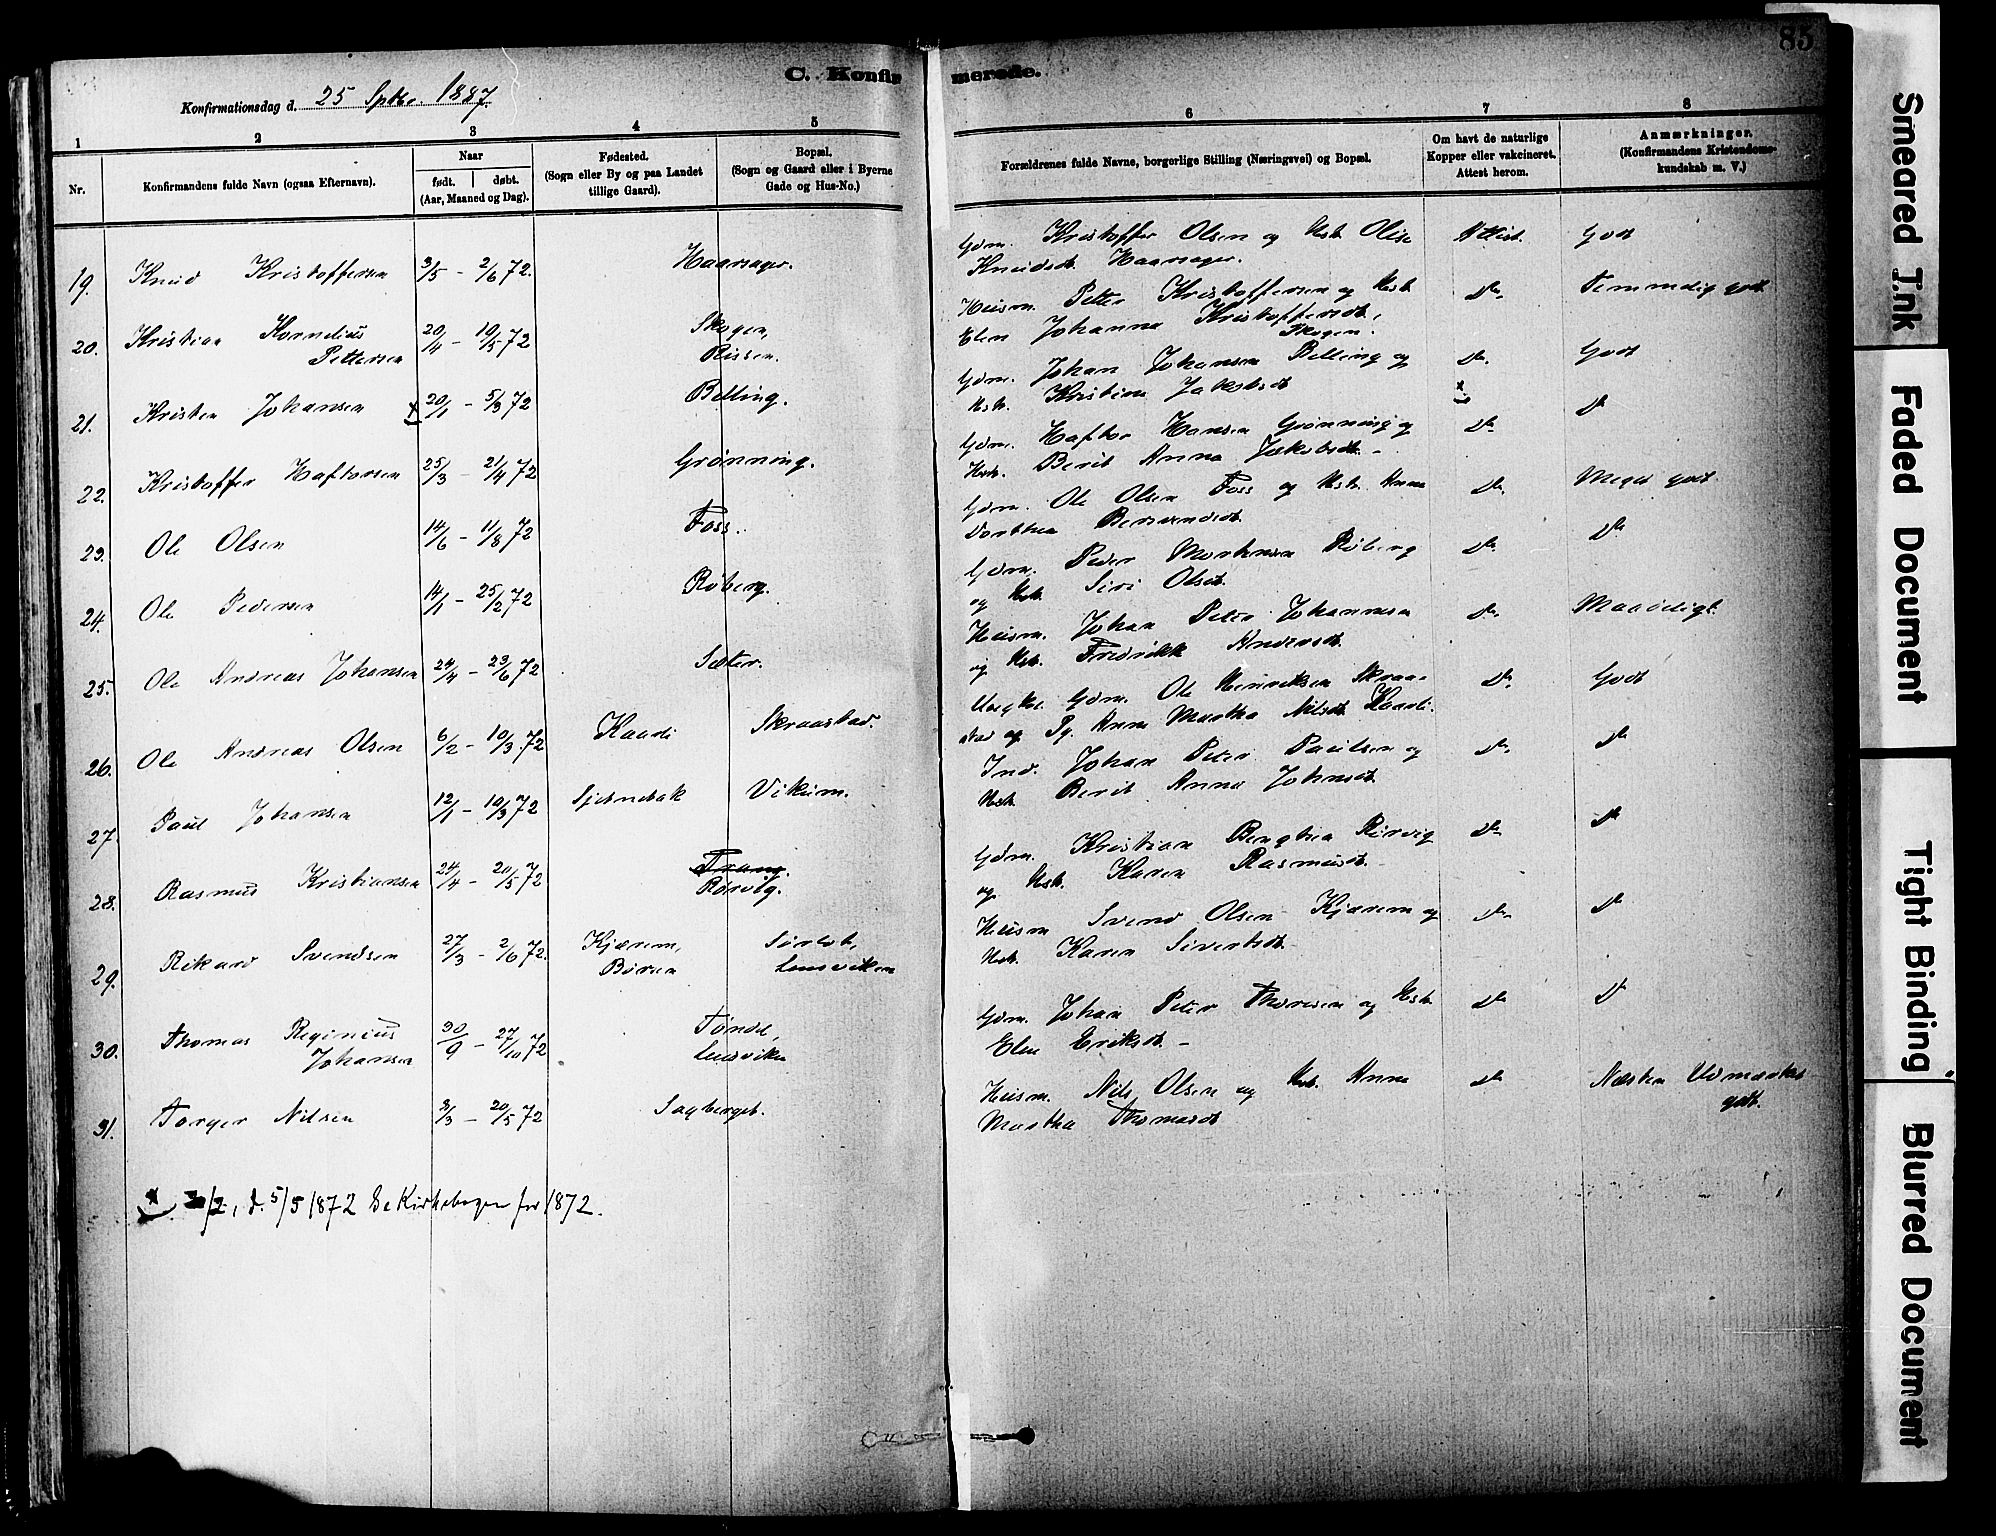 85
C. Konfirmerede.
Konfirmationsdag d. 25 Sptbr. 1887
1 2 3 4 5 6 7 8
Nr.
Konfirmandens fulde Navn (ogsaa Efternavn).
Naar
født. | døbt.
(Aar, Maaned og Dag).
Fødested.
(Sogn eller By og paa Landet
tillige Gaard).
Bopæl.
(Sogn og Gaard eller i Byerne
Gade og Hus-No.)
Forældrenes fulde Navne, borgerlige Stilling (Næringsvei) og Bopæl.
Om havt de naturlige
Kopper eller vakcineret.
Attest herom.
Anmærkninger.
(Konfirmandens Kristendoms-
kundskab m. V.)
19. Knud Kristoffersen 3/5 - 2/6 72. Haarsager.
Gdm. Kristoffer Olsen og Hst. Olise Attest. Godt
Knudsdt. Haarsager.
20. Kristian Kornelius 20/4 - 19/5 72 Skogen,
Pettersen Rissen.
Husm. Petter Kristoffersen og Hst. Do. Temmelig godt
Elen Johanna Kristoffersdt.,
Skogen.
21. Kristen Johansen x 20/1 - 5/3 72 Belling.
Gdm. Johan Johansen Belling og Do. Godt
Hst. Kristine Jakobsdt x
22. Kristoffer Haftorsen 25/3 - 21/4 72 Grønning.
Gdm. Haftor Hansen Grønning og Do. Do
Hst. Berit Anna Jakobsdt. -
23. Ole Olsen 14/6 - 11/8 72 Foss.
Gdm. Ole Olsen Foss og Hst. Anne Do. Meget godt.
Dorthea
24. Ole Pedersen 14/1 - 25/2 72 Røberg.
Gdm. Peder Mortensen Røberg Do. Do
og Hst. Siri Olsdt.
25. Ole Andreas Johansen 24/4 - 23/6 72 Sæter.
Husm. Johan Peter Johannesen Do. Maadeligt
og Hst. Fredrikke Andersdt.
26. Ole Andreas Olsen 6/2 - 10/3 72 Skraastad.
Ungkl. Gdm. Ole Henriksen Skraa- Do. Godt
stad og Pg. Anne Martha Nilsdt.
27. Paul Johansen 12/1 - 10/3 72 Vikum.
Ind. Johan Peter Paulsen og Do. Do
Hst. Berit Anna Johnsdt.
28. Rasmus Kristiansen 24/4 - 20/5 72 Trang.
Rørvig.
Gdm. Kristian Rørvig Do Do
og Hst. Karen Rasmusdt.
29. Rikard Svendsen 27/3 - 2/6 72. Kjærem,
Børsen Lensviken
Husm Svend Olsen Kjærem og Do Do
Hst. Karen Sivertsdt.
30. Thomas Reginius 30/9 - 27/10 72
Johansen Lensviken
Gdm. Johan Peter Thoresen og Hst. Do Do
Elen Eriksdt. -
31. Torger Nilsen 3/3 - 20/5 72 Sagberget.
Husm. Nils Olsen og Hst. Anne Do Næsten Udmærket
Martha Thomasdt godt.
x 2/2, d. 5/5 1872 Se Kirkebogen for 1872.
Smeared Ink
Faded Document
Tight Binding
Blurred Document